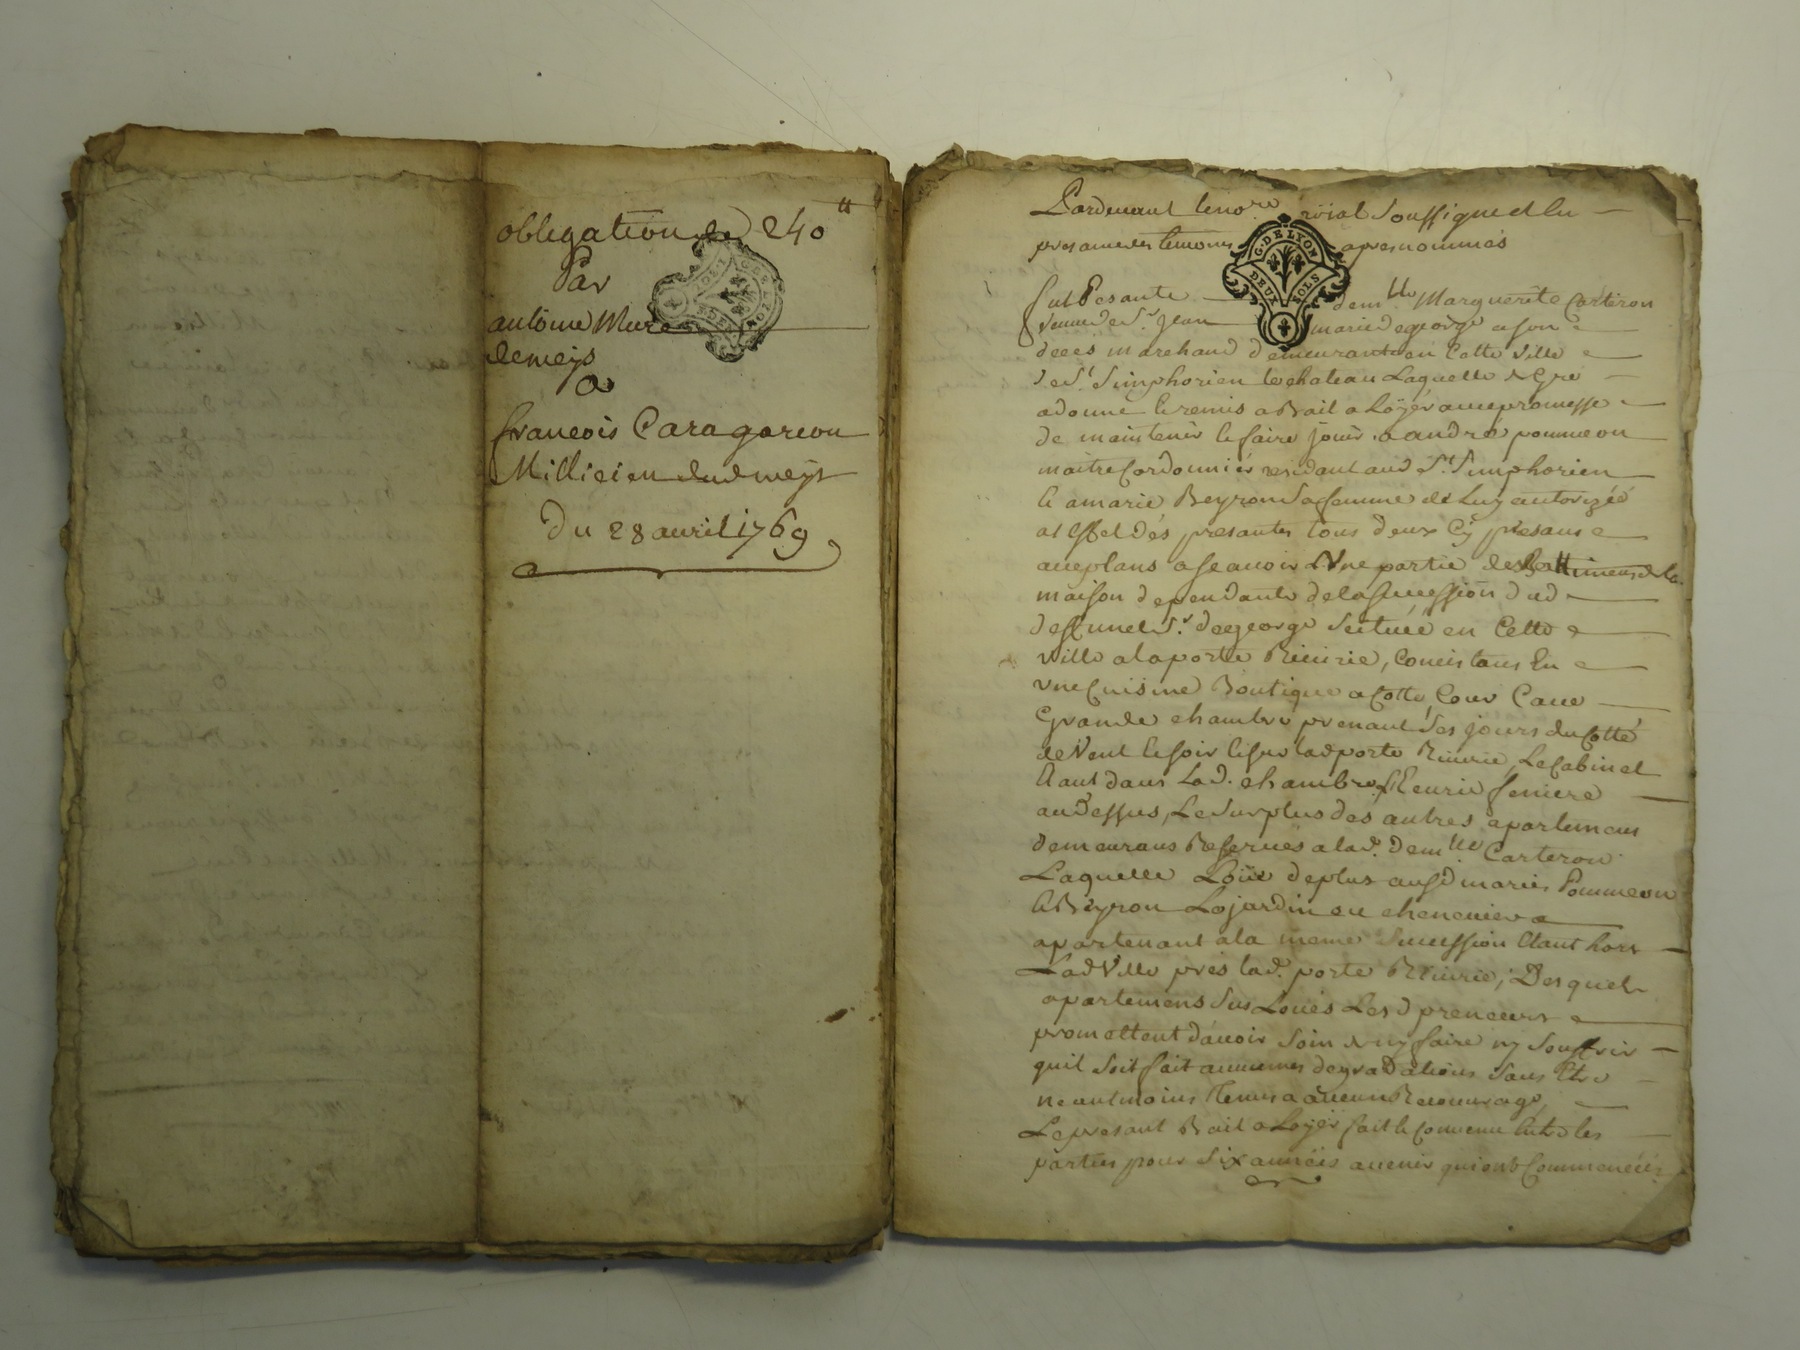 obligation de 240tt
Par
antoine Mure
demeys
a
francois Caragorcon
Millicien dud meys
Du 28 avril 1769
Pardevant le no.re royal soussigné et En
presance des temoins apres nommés
G. DE LYON
DEUX SOLS
fut Presante demlle Marguerite Carteron
veuve de Sr. Jean marie degeorge a son
deces marchand demeurante en Cette ville
de St. Simphorien le chateau Laquelle de gre
a donné Et remis a Bail a Loyer avec promesse
de maintenir Et faire jouir a andré pommeon
maitre Cordonnier residant aud St. Simphorien
Et a marie Beyron sa femme de Luy autorizéé
a l'Effet des presantes tous deux Cy presans
aceptans a scavoir Une partie des Battimens de la
maison dependante de la sucession dud
deffunct Sr. degeorge scituéé en Cette
ville a la porte Rivirie, Concistans En
une Cuisine Boutique a Cotté, Cour Cave
Grande chambre prenant ses jours du Cotté
de Vent Et soir Et sur lad porte Rivirie, Le Cabinet
Etant dans Lad. chambre, Ecurie feniere
au dessus, Le surplus des autres apartemens
demeurans Reservés a lad. demlle Carteron
Laquelle Loüe de plus ausd mariés Pommeon
Et Beyron Le jardin ou chenevier
apartenant a la meme sucession Etant hors
Lad Ville près lad. porte Rivirie, Desquels
apartemens sus Loués Lesd preneurs
promettent d'avoir soin de ny faire ny souffrir
quil soit fait aucunes degradations sans Etre
neantmoins Tenus a aucun Recouvrage,
Le presant Bail a Loyer fait Et Convenu Entre les
parties pour six années a venir qui ont Commencéés